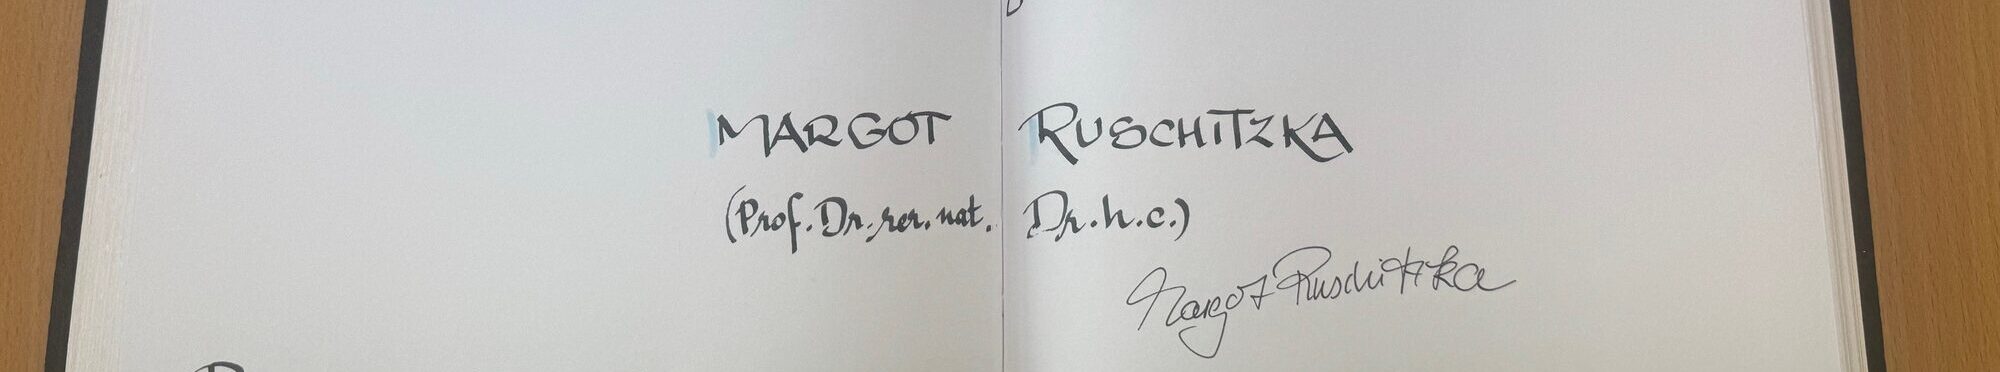 MARGOT RUSCHITZKA
(Prof. Dr. rer. nat. Dr. h. c.)
Margot Ruschitzka